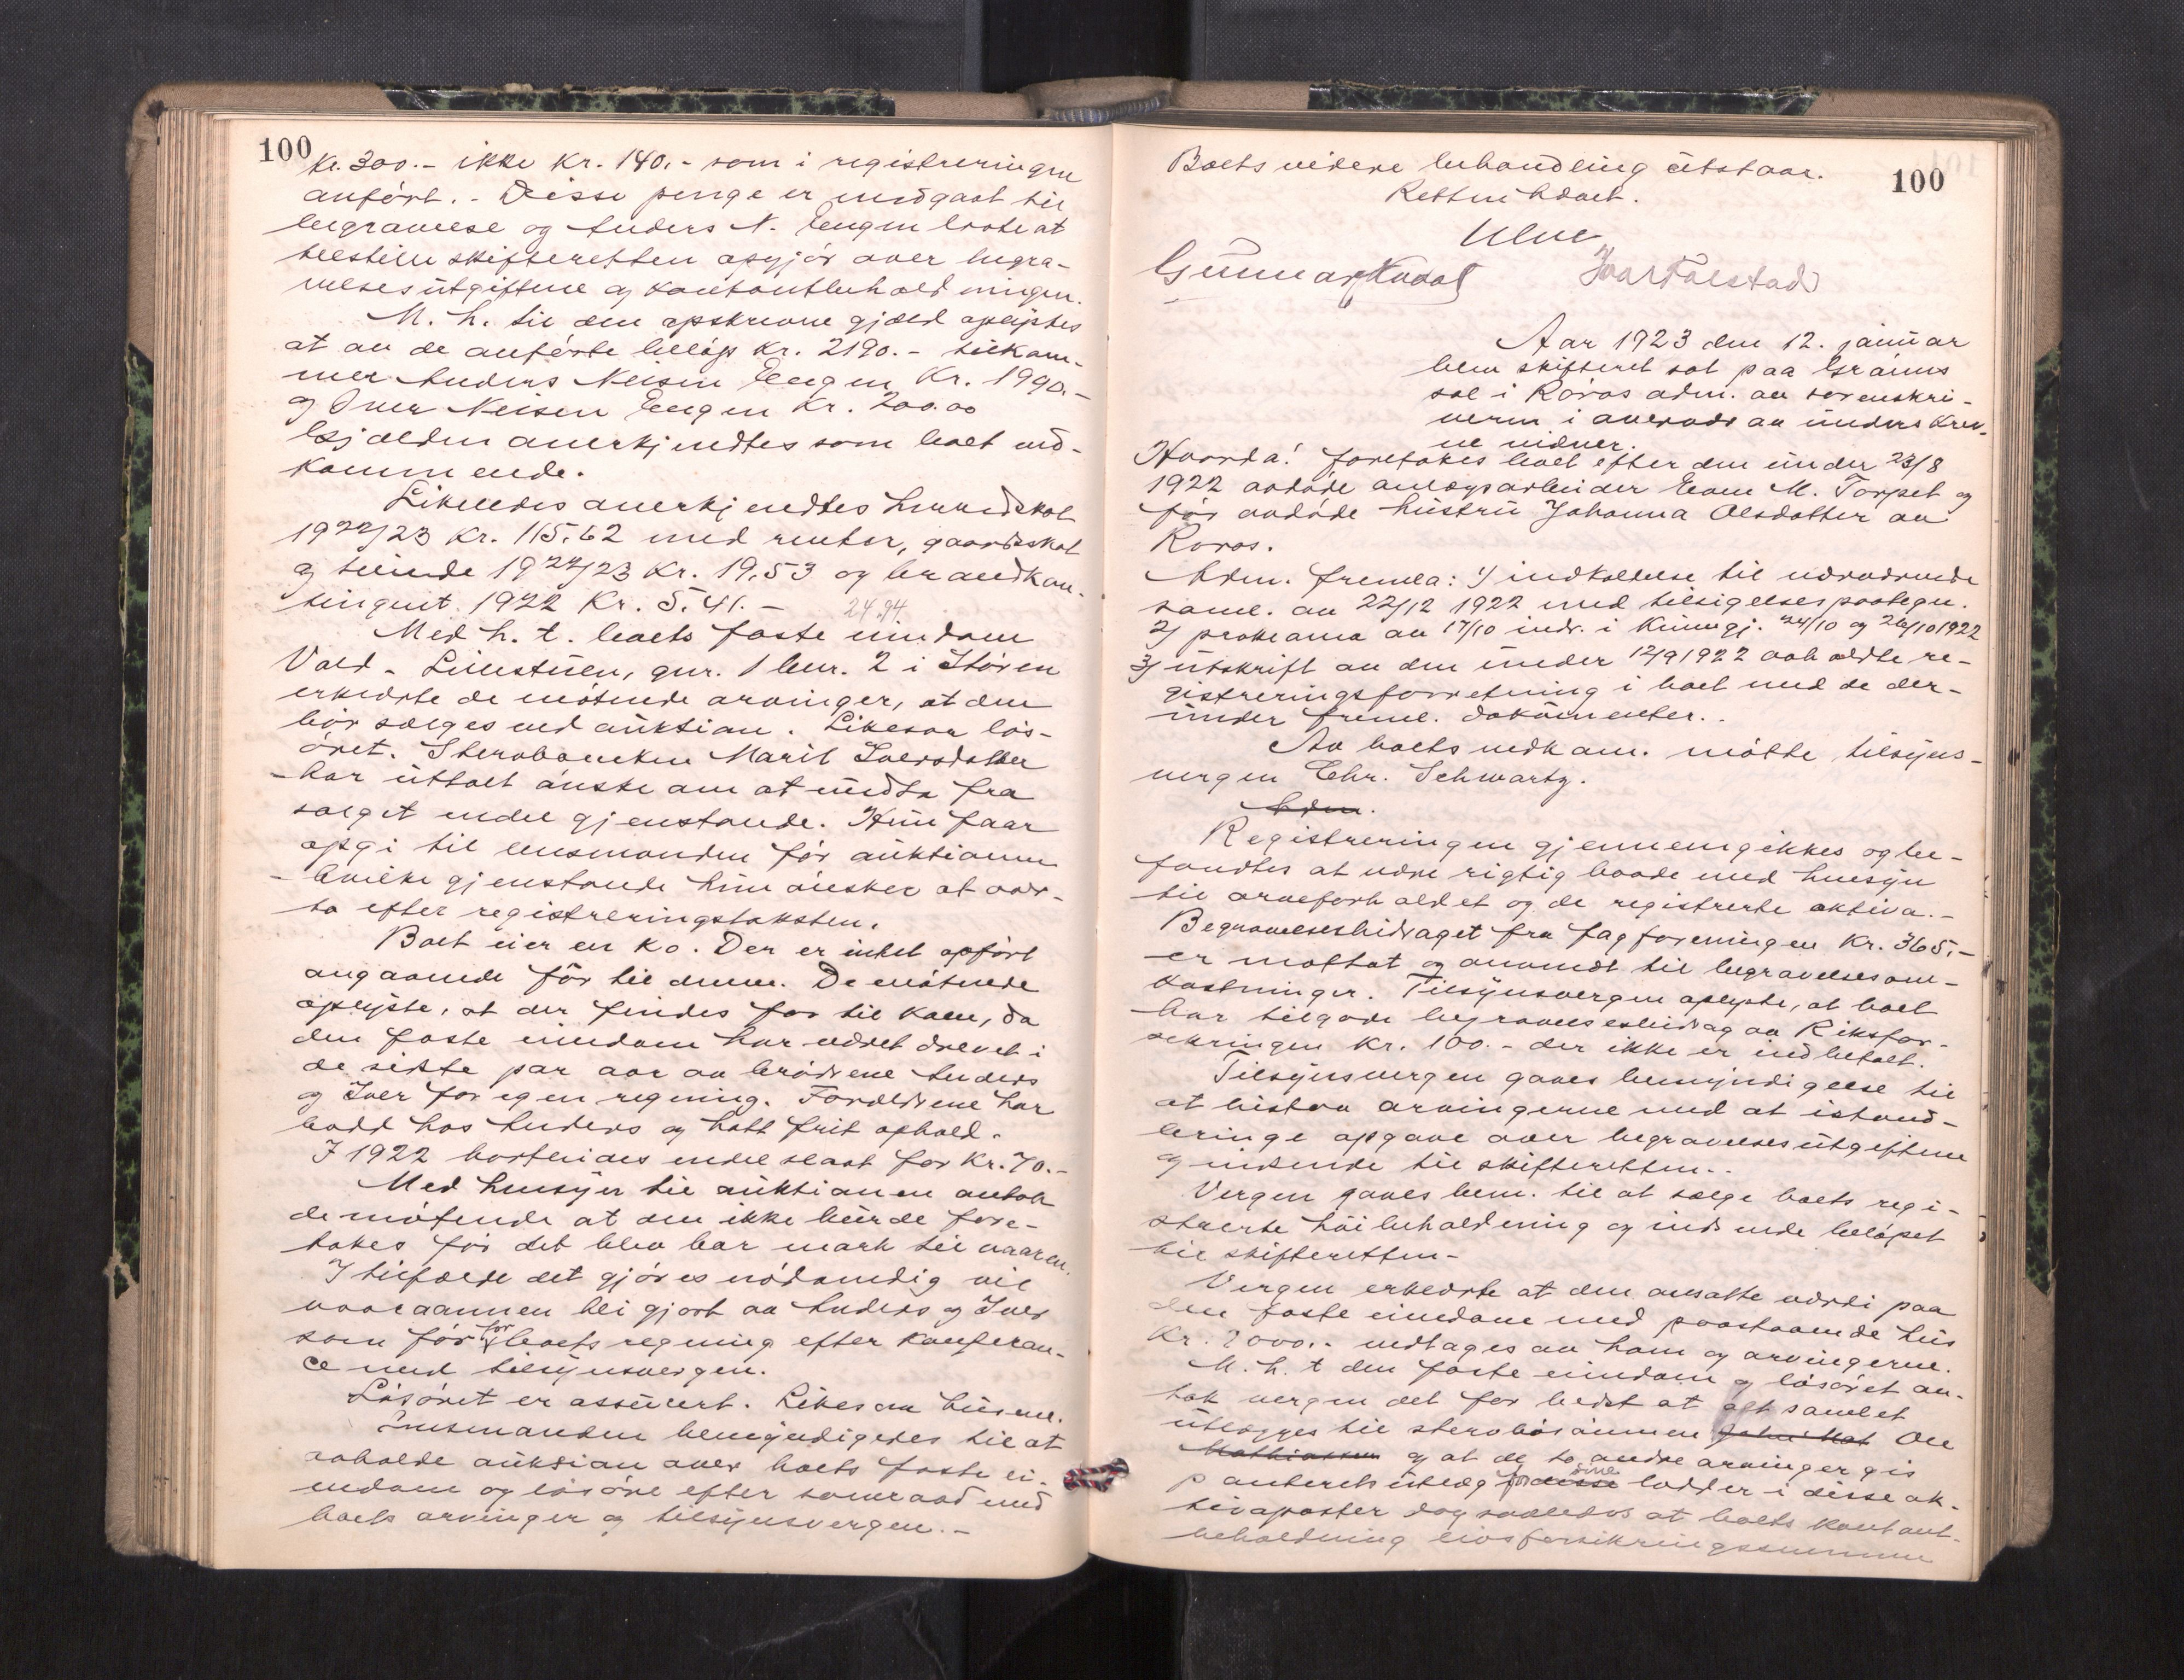 100
Kr. 300.- ikke kr. 140.- som i registreringen
anført. - Disse penge er medgaat til
begravelse og Anders N. Engen lovte at
tilstille skifteretten opgjør over begra-
velsesutgiftene og kontantbeholdningen.
M. h. til den opskrevne gjæld oplystes
at av de anførte beløp kr. 2190.- tilkom-
mer Anders Nilsen Engen kr. 1990.-
og Iver Nilsen Engen kr. 200.00
Gjælden anerkjendtes som boet ved-
kommende.
Likeledes anerkjendtes herredskat
1922/23 kr. 115.62 med renter, gaardskat
og tiende 1922/23 kr. 19.53 og brandkon-
tingent 1922 kr. 5.41.- 24.94
Med h. t. boets faste eiendom
Vold - Lillestuen, gnr. 1 bnr. 2 i Støren
erklærte de møtende arvinger, at den
bør sælges ved auktion. Likesaa løs-
øret. Sterboenken Marit Iversdatter
har uttalt ønske om at undta fra
salget endel gjenstande. Hun faar
opgi til lensmanden før auktionen
hvilke gjenstande hun ønsker at over-
ta efter registreringstaksten.
Boet eier en ko. Der er intet opført
angaaende fôr til denne. De møtende
oplyste, at der findes for til koen, da
den faste eiendom har været drevet i
de siste par aar av brødrene Anders
og Iver for egen regning. Forældrene har
bodd hos Anders og hatt frit ophold.
I 1922 bortleides endel slaat for kr. 70.-
Med hensyn til auktionen antok
de møtende at den ikke burde fore-
takes før det blev bar mark til vaaren.
I tilfælde det gjøres nødvendig vil
vaaraannen bli gjort av Anders og Iver
som før for boets regning efter konferan-
ce med tilsynsvergen.
Løsøret er assurert. Likesaa husene.
Lensmanden bemyndigedes til at
avholde auktion over boets faste ei-
endom og løsøre efter samraad med
boets arvinger og tilsynsvergen.-
100
Boets videre behandling utstaar.
Retten hævet.
Ulve
Gunnar Kvaal Ivar Tolstad
Aar 1923 den 12. januar
blev skifteret sat paa Graanes
sal i Røros adm. av sorenskri-
veren i overvær av underskrev-
ne vidner.
Hvorda! foretokes boet efter den under 23/8
1922 avdøde anlægsarbeider Even M. Torpet og
før avdøde hustru Johanna Olsdatter av
Røros.
Adm. fremla: 1) indkaldelse til nærværende
saml. av 22/12 1922 med tilsigelsespaategn.
2) proklama av 17/10 indr. i Kunngj. 24/10 og 26/10 1922
3) utskrift av den under 12/9 1922 avholdte re-
gistreringsforretning i boet med de der-
under freml. dokumenter..
Av boets vedkom. møtte tilsyns-
vergen Chr. Schwartz.
Adm.
Registreringen gjennemgikkes og be-
fandtes at være rigtig baade med hensyn
til arveforholdet og de registrerte aktiva.-
Begravelsesbidraget fra fagforeningen kr. 365,-
er mottat og anvendt til begravelsesom-
kostninger. Tilsynsvergen oplyste, at boet
har tilgode begravelsesbidrag av Riksfor-
sikringen kr. 100.- der ikke er indbetalt.
Tilsynsvergen gaves bemyndigelse til
at bistaa arvingerne med at istand-
bringe opgave over begravelsesutgiftene
og indsende til skifteretten..
Vergen gaves bem. til at sælge boets regi-
strerte høibeholdning og indsende beløpet
til skifteretten-
Vergen erklærte at den ansatte værdi paa
den faste eiendom med paastaaende hus
kr. 2000.- vedtages av ham og arvingerne.
M. h. t den faste eiendom og løsøret an-
tok vergen det for bedst at alt samlet
utlægges til sterbosønnen Ole
Mathiassen og at de to andre arvinger gis
panterets utlæg for disse sine lodder i disse ak-
tivaposter dog saaledes at boets kontant-
beholdning livsforsikringssummen